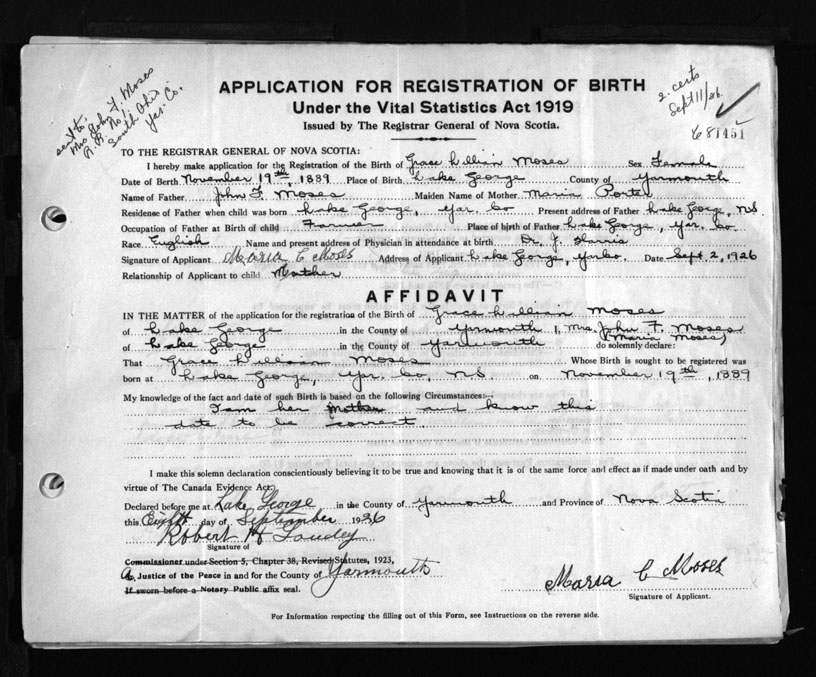 sent to:
Mrs John F. Moses
R. R. No 1
South Ohio
Yar. Co.
2 certs
Sept 11/26
681451
APPLICATION FOR REGISTRATION OF BIRTH
Under the Vital Statistics Act 1919
Issued by The Registrar General of Nova Scotia.
TO THE REGISTRAR GENERAL OF NOVA SCOTIA:
I hereby make application for the Registration of the Birth of Grace Lillian Moses Sex Female
Date of Berth November 19th, 1889 Place of Birth Lake George County of Yarmouth
Name of Father John F. Moses Maiden Name of Mother Maria Porter
Residense of Father when child was born Lake George, Yar. Co Present address of Father Lake George, N.S.
Occupation of Father at Birth of child Farmer Place of birth of Father Lake George, Yar. Co.
Race English Name and present address of Physician in attendance at birth Dr. J. Harris
Signature of Applicant Maria C Moses Address of Applicant Lake George, Yar Co. Date Sept. 2, 1926
Relationship of Applicant to child Mother
AFFIDAVIT
IN THE MATTER of the application for the registration of the Birth of Grace Lillian Moses
of Lake George in the County of Yarmouth I, Mrs. John F. Moses
(Maria Moses)
of Lake George in the County of Yarmouth do solemnly declare:
That Grace Lillian Moses Whose Birth is sought to be registered was
born at Lake George, Yar. Co, N.S. on November 19th, 1889
My knowledge of the fact and date of such Birth is based on the following Circumstances:-
I am her Mother and know this
date to be correct.
I make this solemn declaration conscientiously believing it to be true and knowing that it is of the same force and effect as if made under oath and by
virtue of The Canada Evidence Act.
Declared before me at Lake George in the County of Yarmouth and Province of Nova Scotia
this Eighth day of September 1926
Robert H
Signature of
Commissioner under Section 5, Chapter 38, Revised Statutes, 1923,
A Justice of the Peace in and for the County of Yarmouth
If sworn before a Notary Public affix seal.
Maria C Moses
Signature of Applicant.
For Information respecting the filling out of this Form, see Instructions on the reverse side.